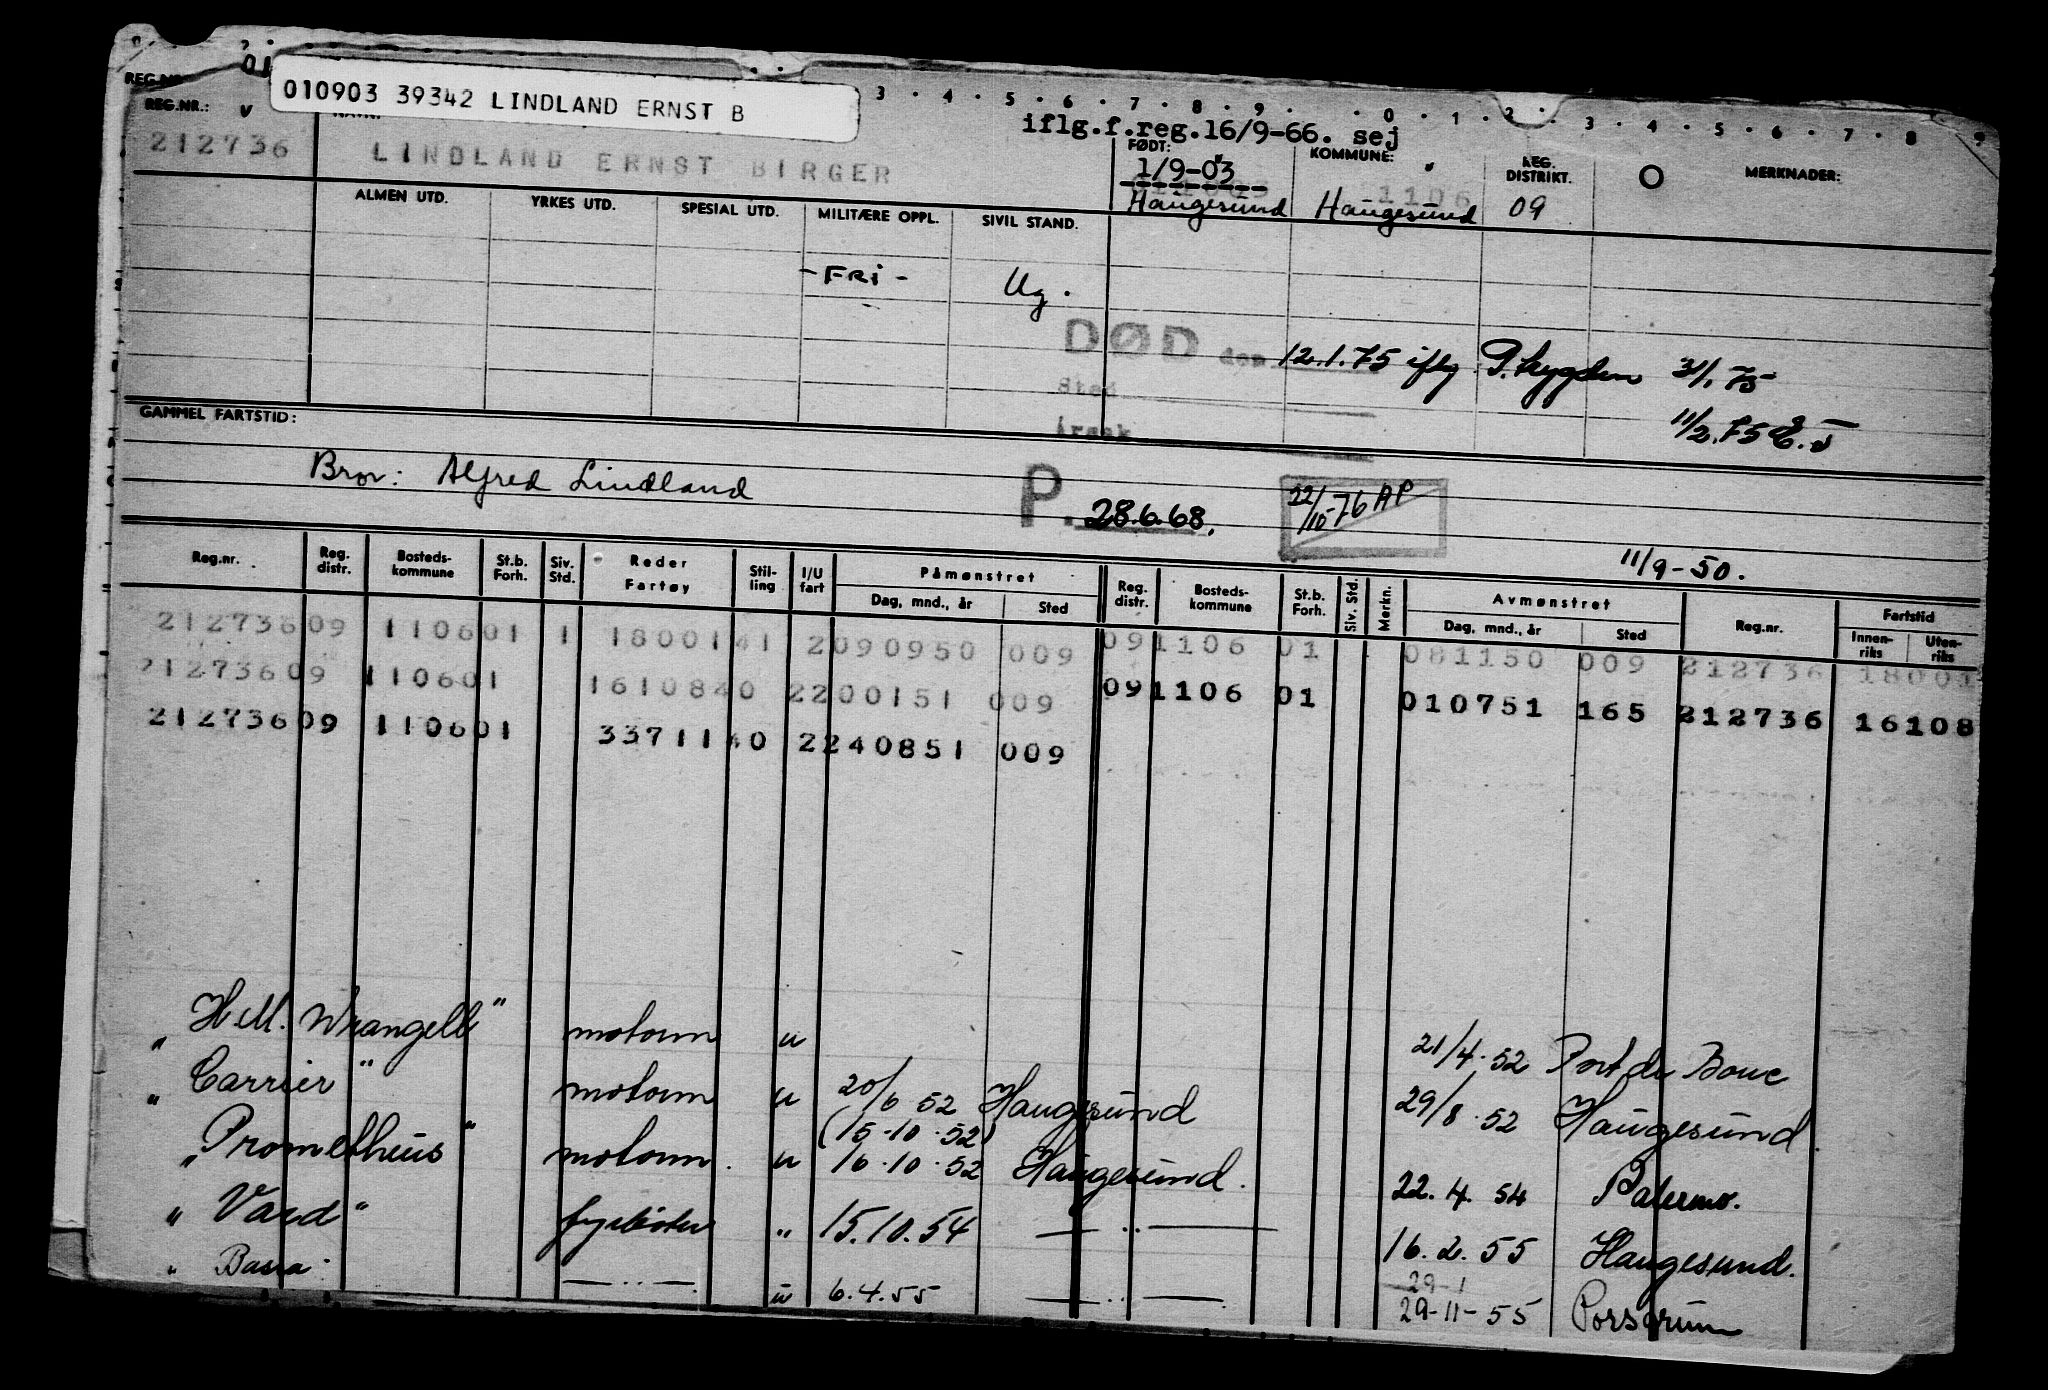 010903 39342 LINDLAND ERNST B
3 4 5 6 7 8 9 0 1 2 3 4 5 6 7 8 9
iflg.f.reg.16/9-66. sej
REG.NR.: v FØDT: KOMMUNE: REG. DISTRIKT. O MERKNADER:
212736 LINDLAND ERNST BIRGER 1/9-03 1106
Haugesund Haugesund 09
ALMEN UTD. YRKES UTD. SPESIAL UTD. MILITÆRE OPPL. SIVIL STAND.
-FRi- Ug.
DØD den 12.1.75 iflg 31/1.75
Sted
Årsak 11/2.75
GAMMEL FARTSTID:
Bror: Alfred Lindland
P. 28.6.68. 22/10-76 AP
11/9-50.
Reg.nr. Reg. distr. Bosteds-kommune St.b. Forh. Siv. Std. Reder Fartøy Stil-ling I/U fart Påmønstret Dag, mnd., år Sted Reg. distr. Bosteds-kommune St.b. Forh. Siv. Std. Merkn. Avmønstret Dag, mnd., år Sted Reg.nr. Fartstid Innen-riks Uten-riks
212736 09 1106 01 1 1800141 2090950 009 09 1106 01 081150 009 212736 18001
212736 09 1106 01 1610840 2200151 009 09 1106 01 010751 165 212736 16108
212736 09 1106 01 3371140 2240851 009
"H.M. Wrangell" motorm u 21/4.52 Port de Bouc
"Carrier" motorm u 20/6 52 Haugesund 29/8.52 Haugesund.
(15.10.52)
"Prometheus" motorm. u 16.10.52 Haugesund. 22.4.54 Palermo.
"Vard" fyrbøter " 15.10.54 — " — 16.2.55 Haugesund.
29-1
"Basra. — " — u 6.4.55 — " — 29-11-55 Porsgrunn